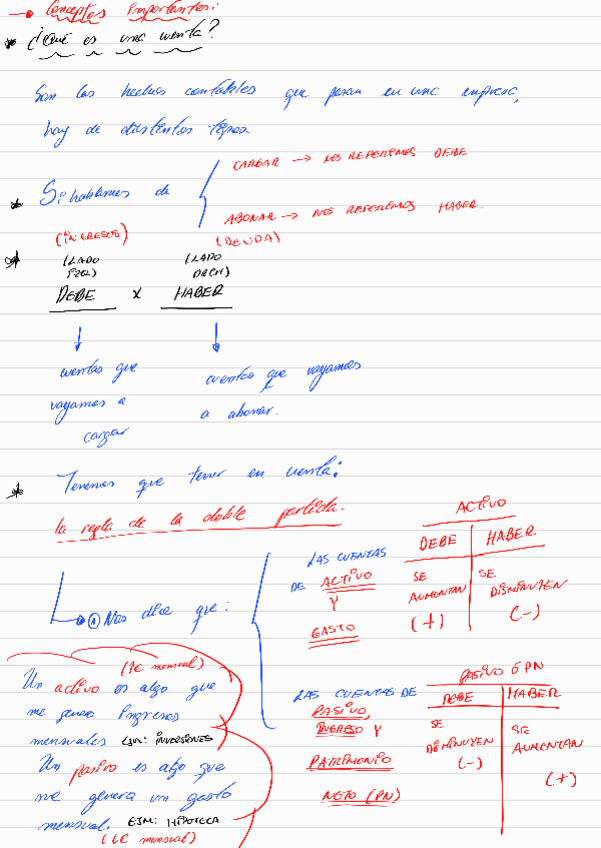 → Conceptos Importantes:
* ¿Qué es una cuenta?
Son los hechos contables que pasan en una empresa,
hay de distintos tipos.
* Si hablamos de
CARGAR → NOS REFERIMOS DEBE
ABONAR → NOS REFERIMOS HABER.
(INGRESOS) (DEUDA)
* (LADO IZQ) (LADO DECH)
DEBE x HABER
cuentas que vayamos a cargar
cuentas que vayamos a abonar.
* Tenemos que tener en cuenta:
la regla de la doble partida.
① Nos dice que:
LAS CUENTAS
DE ACTIVO
Y
GASTO
ACTIVO
DEBE HABER
SE AUMENTAN (+)
SE DISMINUYEN (-)
LAS CUENTAS DE
PASIVO,
INGRESO Y
PATRIMONIO
NETO (PN)
PASIVO ó PN
DEBE HABER
SE DISMINUYEN (-)
SE AUMENTAN (+)
(1€ mensual)
Un activo es algo que
me genera Ingresos
mensuales EJM: INVERSIONES
Un pasivo es algo que
me genera un gasto
mensual. EJM: HIPOTECA
(1€ mensual)